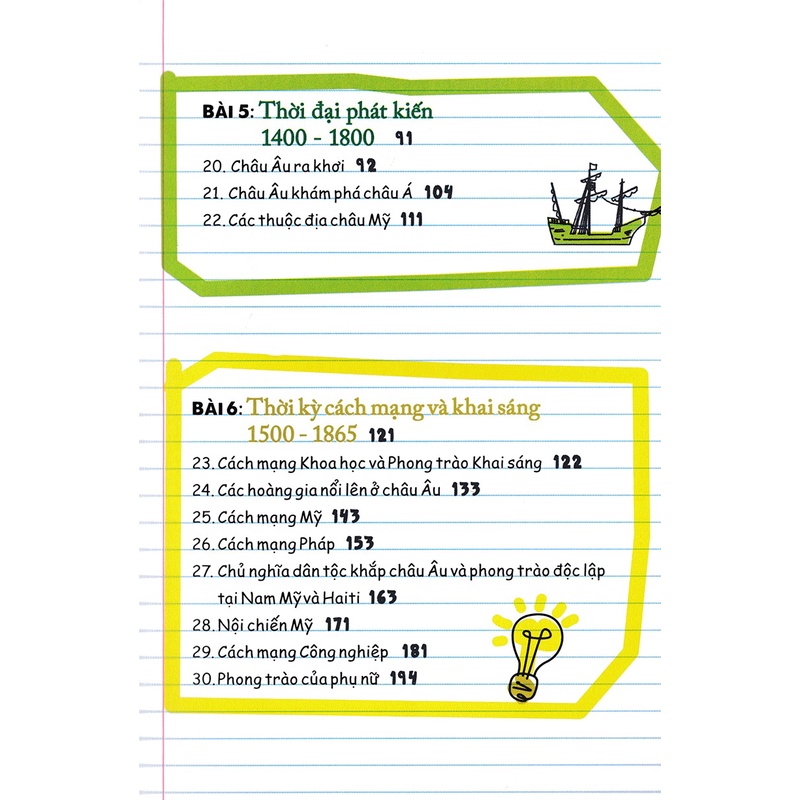 BÀI 5: Thời đại phát kiến
1400 - 1800 91
20. Châu Âu ra khơi 92
21. Châu Âu khám phá châu Á 104
22. Các thuộc địa châu Mỹ 111
BÀI 6: Thời kỳ cách mạng và khai sáng
1500 - 1865 121
23. Cách mạng Khoa học và Phong trào Khai sáng 122
24. Các hoàng gia nổi lên ở châu Âu 133
25. Cách mạng Mỹ 143
26. Cách mạng Pháp 153
27. Chủ nghĩa dân tộc khắp châu Âu và phong trào độc lập
tại Nam Mỹ và Haiti 163
28. Nội chiến Mỹ 171
29. Cách mạng Công nghiệp 181
30. Phong trào của phụ nữ 194